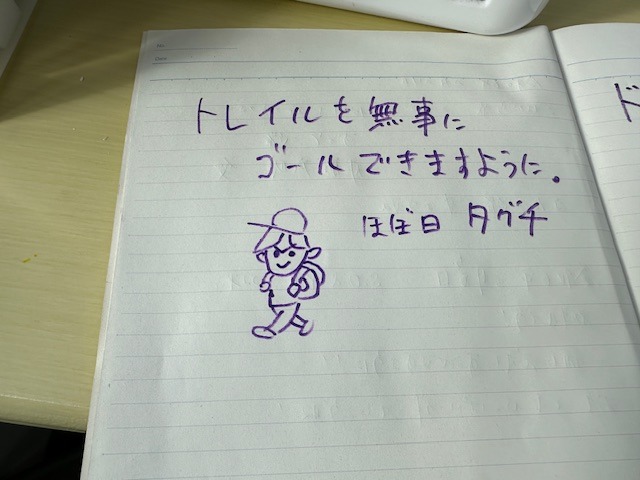 No.
Date
トレイルを無事に
ゴールできますように。
ほぼ日 タグチ
ド